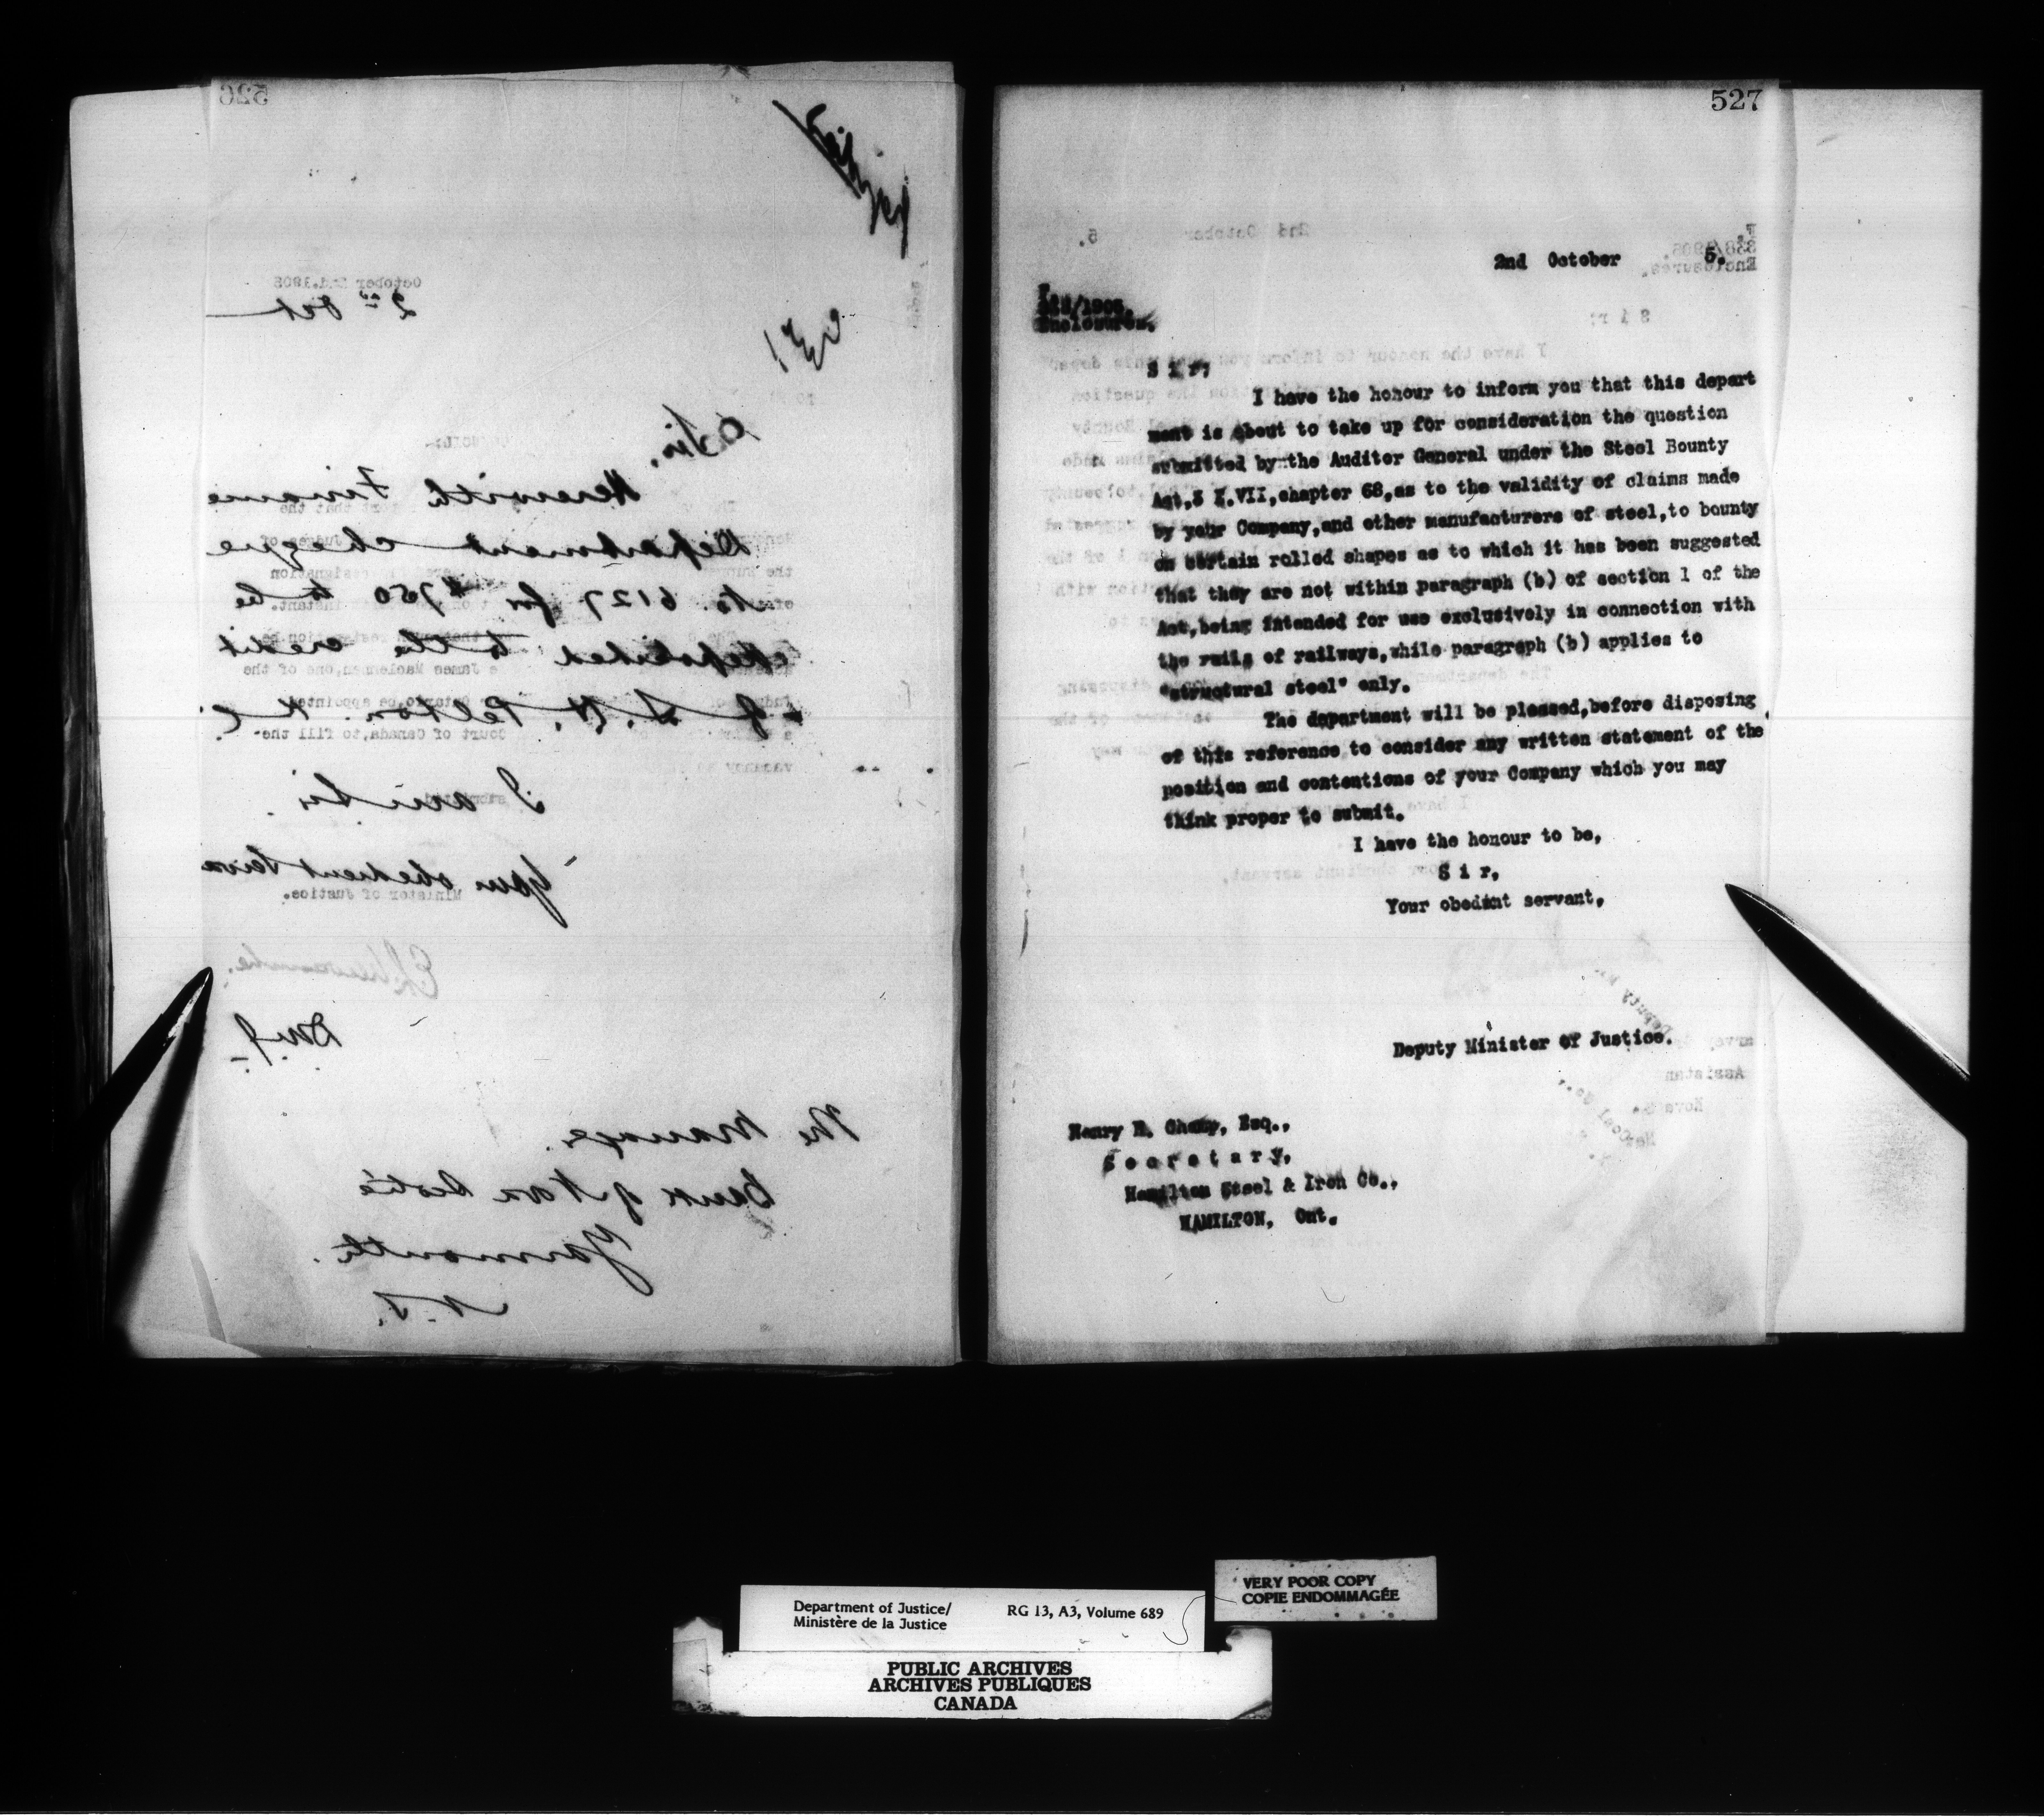 526
October 2nd.1905
2nd Oct
Sir,
Herewith Finance
Department cheque
No. 6127 for $750 to be
deposited to the credit
of S. H. Pelton. K.C.
I am Sir.
Your obedient Serva
E L Newcombe.
D.M.J.
The Manager.
Bank of Nova Scotia
Yarmouth.
N.S.
Minister of Justice.
527
2nd October 5.
Enclosures.
S i r;
I have the honour to inform you that this depart
ment is about to take up for consideration the question
submitted by the Auditor General under the Steel Bounty
Act,3 E.VII,chapter 68,as to the validity of claims made
by your Company,and other manufacturers of steel,to bounty
on certain rolled shapes as to which it has been suggested
that they are not within paragraph (b) of section 1 of the
Act,being intended for use exclusively in connection with
the rails of railways,while paragraph (b) applies to
"structural steel" only.
The department will be pleased,before disposing
of this reference to consider any written statement of the
position and contentions of your Company which you may
think proper to submit.
I have the honour to be,
S i r,
Your obedint servant,
Deputy Minister of Justice.
Henry H. Champ, Esq.,
S e c r e t a r y,
Hamilton Steel & Iron Co.,
HAMILTON, Ont.
VERY POOR COPY
COPIE ENDOMMAGÉE
Department of Justice/ RG 13, A3, Volume 689
Ministère de la Justice
PUBLIC ARCHIVES
ARCHIVES PUBLIQUES
CANADA